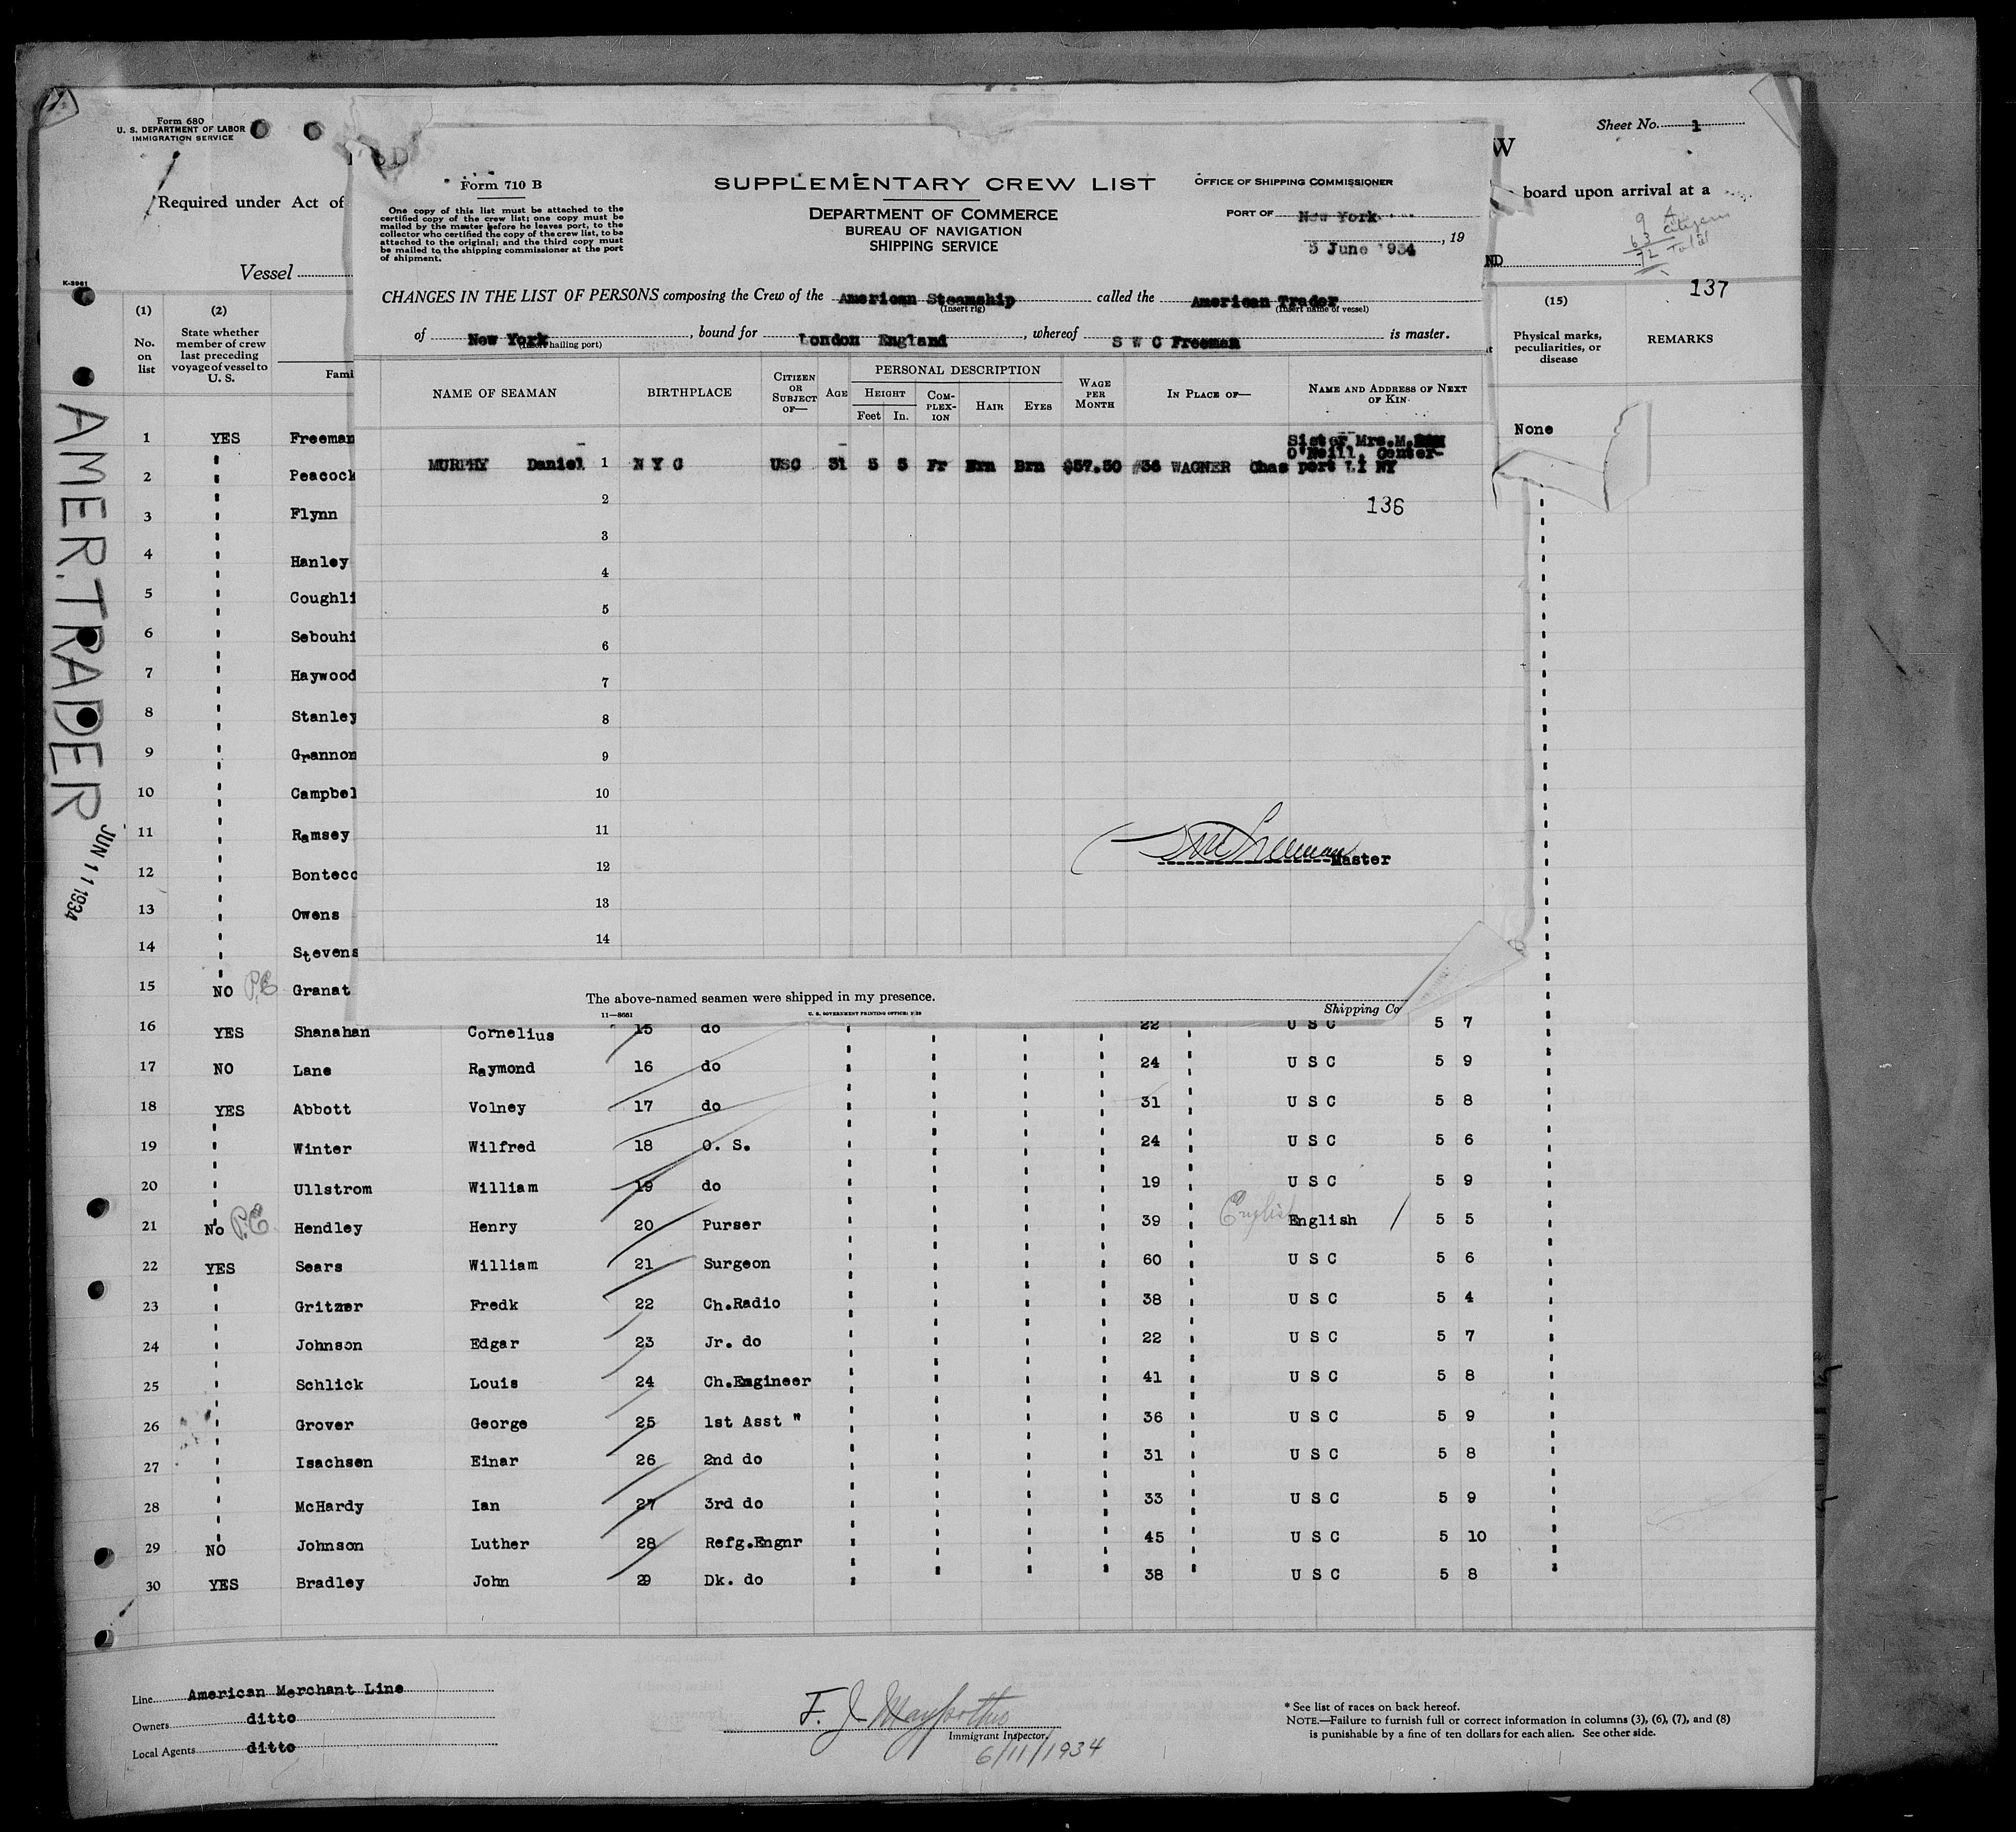 Form 680
U. S. DEPARTMENT OF LABOR
IMMIGRATION SERVICE
Sheet No. 1
W
Required under Act of
board upon arrival at a
9 A
63 citizens
72 Total
Vessel
ND
K-8961
137
Form 710 B
SUPPLEMENTARY CREW LIST
OFFICE OF SHIPPING COMMISSIONER
One copy of this list must be attached to the
certified copy of the crew list; one copy must be
mailed by the master before he leaves port, to the
collector who certified the copy of the crew list, to be
attached to the original; and the third copy must
be mailed to the shipping commissioner at the port
of shipment.
DEPARTMENT OF COMMERCE
BUREAU OF NAVIGATION
SHIPPING SERVICE
PORT OF New York
5 June 1934, 19
CHANGES IN THE LIST OF PERSONS composing the Crew of the American Steamship called the American Trader
(Insert rig) (Insert name of vessel)
of New York, bound for London England, whereof S W C Freeman is master.
(Insert hailing port)
NAME OF SEAMAN BIRTHPLACE CITIZEN OR SUBJECT OF— AGE PERSONAL DESCRIPTION HEIGHT Feet In. COMPLEXION HAIR EYES WAGE PER MONTH IN PLACE OF— NAME AND ADDRESS OF NEXT OF KIN
Sister Mrs.M.
O'Neill, Center-
MURPHY Daniel 1 N Y C USC 31 5 5 Fr Brn Brn $57.50 #36 WAGNER Chas port LI NY
2 136
3
4
5
6
7
8
9
10
11
12
13
14
Master
The above-named seamen were shipped in my presence.
Shipping Co
11—8661 U. S. GOVERNMENT PRINTING OFFICE
(1) (2) (15)
No. on list
State whether member of crew last preceding voyage of vessel to U. S.
Fami
Physical marks, peculiarities, or disease
REMARKS
AMER.TRADER
JUN 11 1934
1 YES Freeman None
2 " Peacock
3 " Flynn
4 " Hanley
5 " Coughli
6 " Sebouhi
7 " Haywood
8 " Stanley
9 " Grannon
10 " Campbel
11 " Ramsey
12 " Bonteco
13 " Owens
14 " Stevens
15 NO P.E. Granat
16 YES Shanahan Cornelius 15 do 22 U S C 5 7
17 NO Lane Raymond 16 do 24 U S C 5 9
18 YES Abbott Volney 17 do 31 U S C 5 8
19 Winter Wilfred 18 O. S. 24 U S C 5 6
20 Ullstrom William 19 do 19 U S C 5 9
21 No P.E. Hendley Henry 20 Purser 39 English English / 5 5
22 YES Sears William 21 Surgeon 60 U S C 5 6
23 Gritzer Fredk 22 Ch.Radio 38 U S C 5 4
24 Johnson Edgar 23 Jr. do 22 U S C 5 7
25 Schlick Louis 24 Ch.Engineer 41 U S C 5 8
26 Grover George 25 1st Asst " 36 U S C 5 9
27 Isachsen Einar 26 2nd do 31 U S C 5 8
28 McHardy Ian 27 3rd do 33 U S C 5 9
29 NO Johnson Luther 28 Refg.Engnr 45 U S C 5 10
30 YES Bradley John 29 Dk. do 38 U S C 5 8
Line American Merchant Line
Owners ditto
Local Agents ditto
F. J.
Immigrant Inspector.
6/11/1934
* See list of races on back hereof.
NOTE.—Failure to furnish full or correct information in columns (3), (6), (7), and (8)
is punishable by a fine of ten dollars for each alien. See other side.